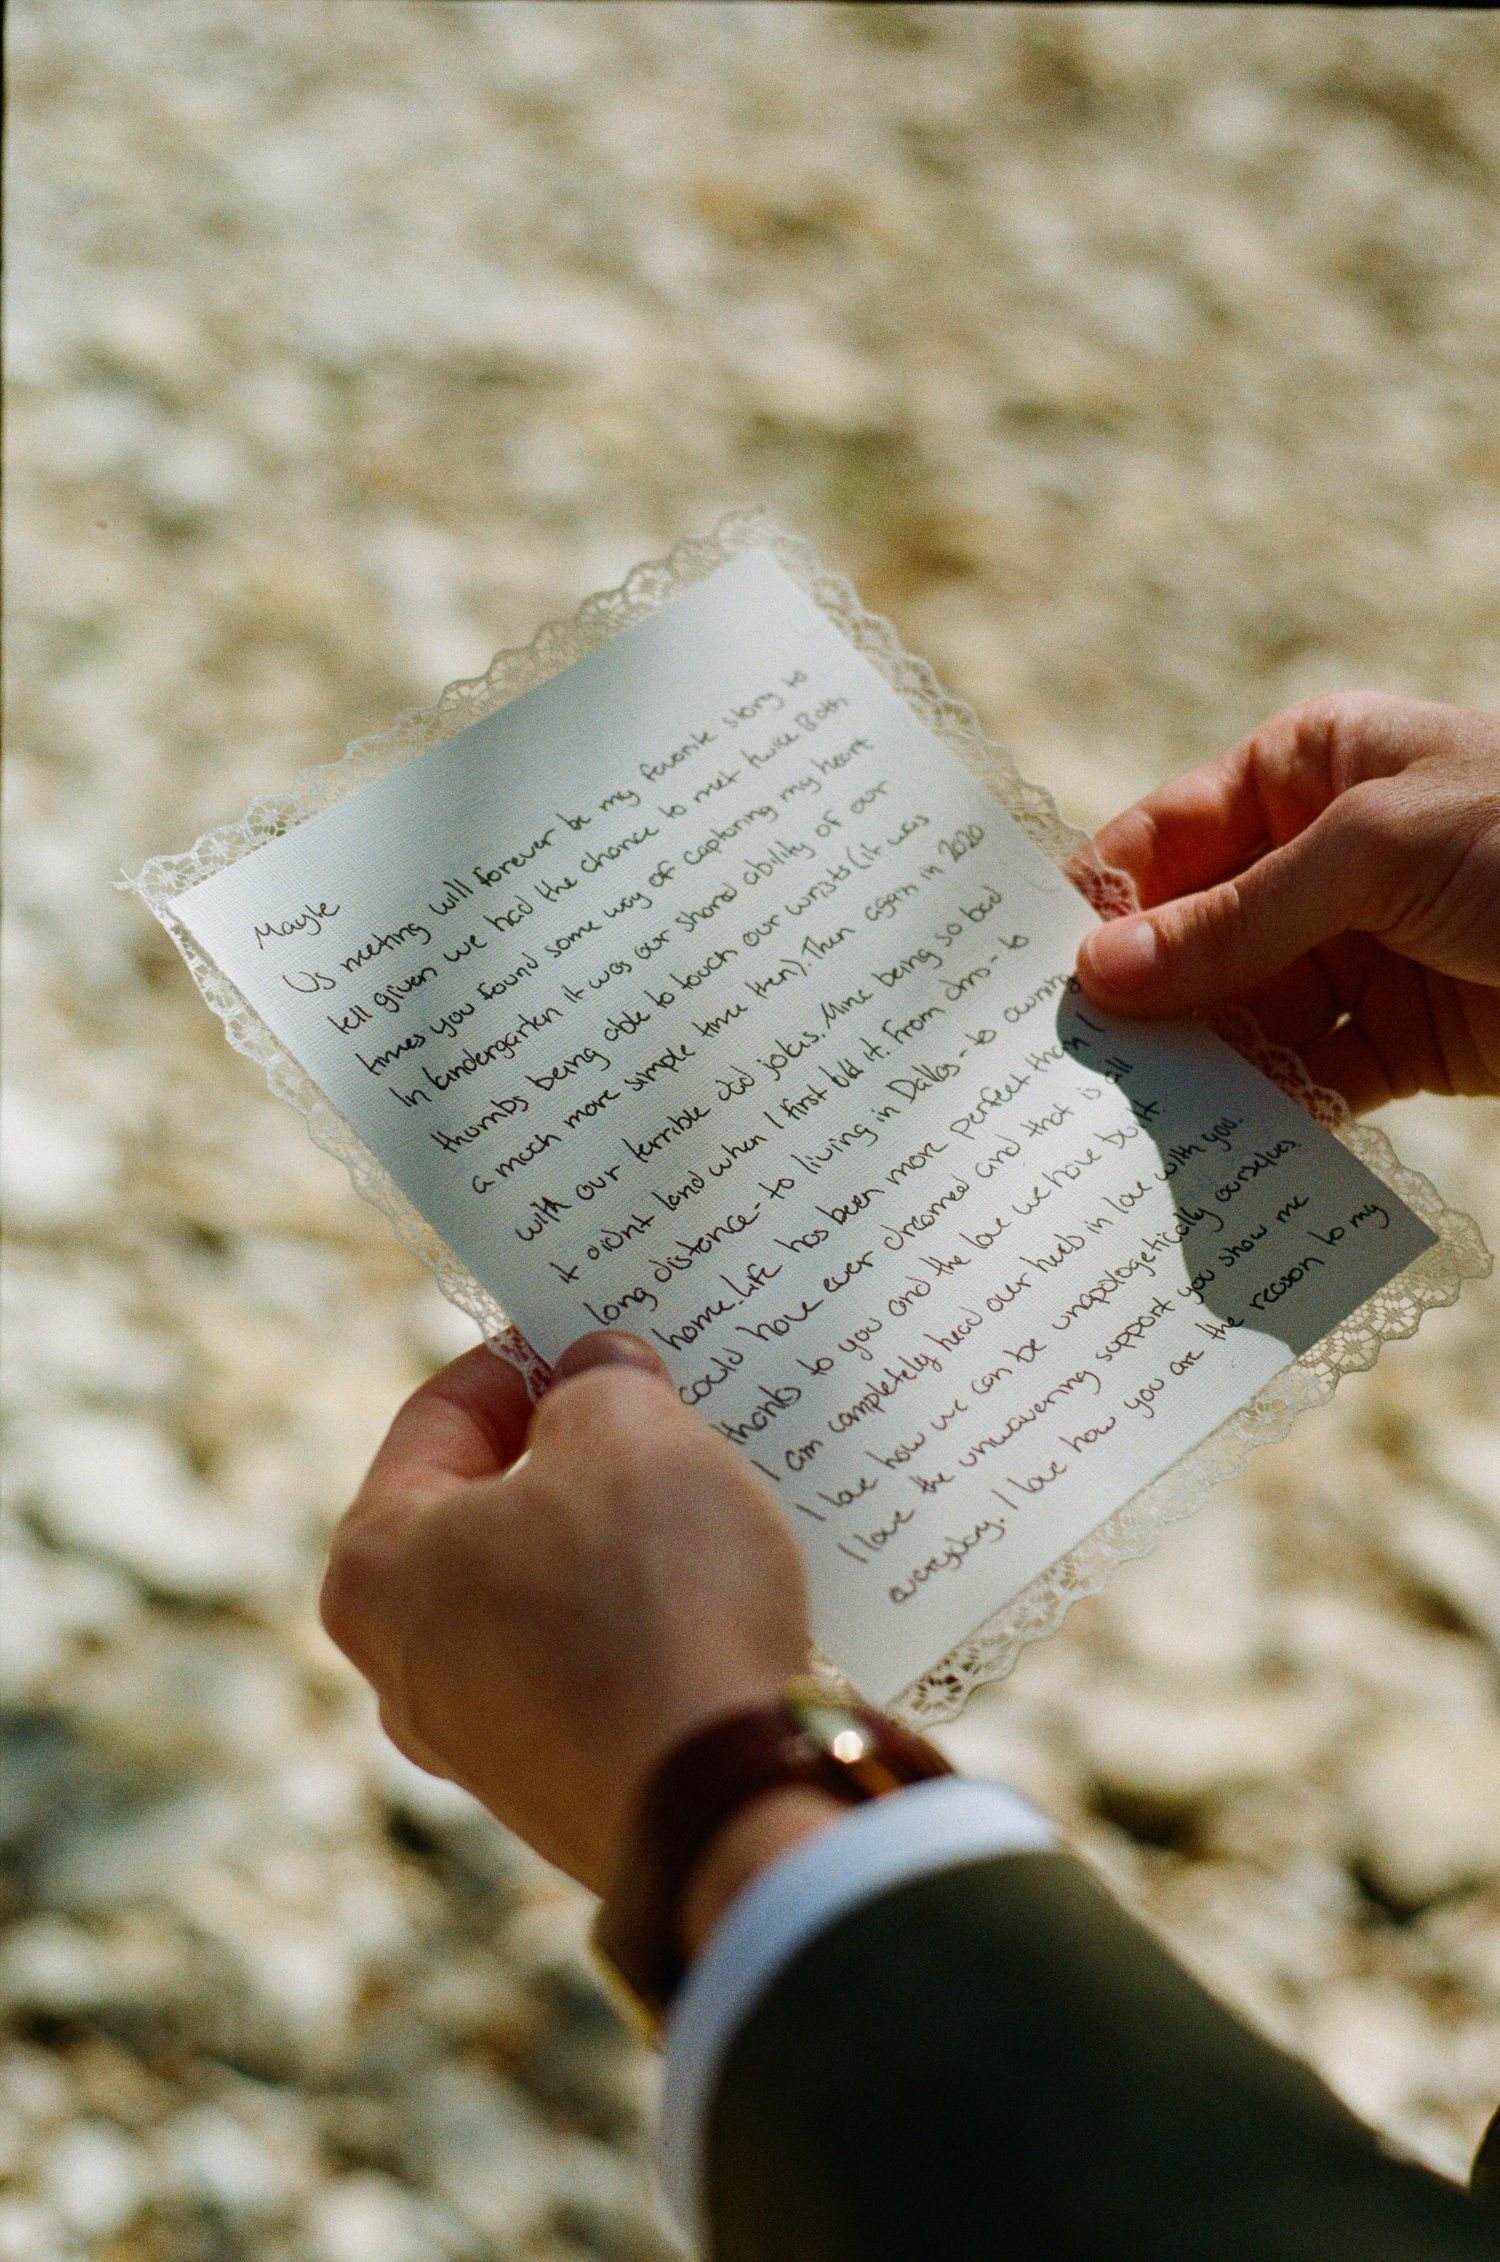 Mayte
Us meeting will forever be my favorite story to
tell given we had the chance to met twice Both
times you found some way of capturing my heart
In kindergarten it was our shared ability of our
thumbs being able to touch our wrists (it was
a much more simple time then). Then again in 2020
with our terrible dad jokes. Mine being so bad
it didnt land when I first told it. From dms - to
long distance - to living in Dallas - to owning
home. Life has been more perfect than I
could have ever dreamed and that is all
thanks to you and the love we have built.
I am completely head over heels in love with you.
I love how we can be unapologetically ourselves.
I love the unwavering support you show me
everyday. I love how you are the reason to my